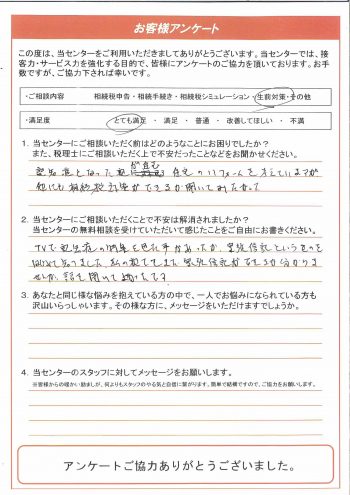 お客様アンケート
この度は、当センターをご利用いただきましてありがとうございます。当センターでは、接
客力・サービス力を強化する目的で、皆様にアンケートのご協力を頂いております。お手
数ですが、ご協力下されば幸いです。
・ご相談内容　相続税申告・相続手続き・相続税シミュレーション・生前対策・その他
・満足度　とても満足 ・ 満足 ・ 普通 ・ 改善してほしい ・ 不満
1. 当センターにご相談いただく前はどのようなことにお困りでしたか？
また、税理士にご相談いただく上で不安だったことなどをお聞かせください。
認知症となった親 自宅のリフォームを考えていますが
他にも相続税対策ができるか聞いてみたかった
2. 当センターにご相談いただくことで不安は解消されましたか？
当センターの無料相談を受けていただいて感じたことをご自由にお書きください。
TVで認知症の 見た事があったが、家族信託というものを
初めて知りました 私の親でもまだ家族信託ができるか分かりま
せんが、話を聞いて
3. あなたと同じ様な悩みを抱えている方の中で、一人でお悩みになられている方も
沢山いらっしゃいます。その様な方に、メッセージをいただけますでしょうか。
4. 当センターのスタッフに対してメッセージをお願いします。
※皆様からの暖かい励ましが、何よりもスタッフのやる気と自信に繋がります。簡単で結構ですので、ご協力をお願いします。
アンケートご協力ありがとうございました。